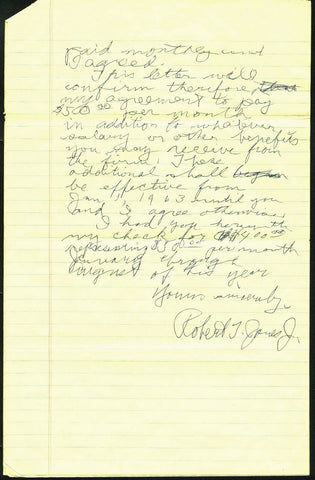 paid monthly and
agreed.
This letter will
confirm therefore,
my agreement to pay
$50.00 per month
in addition to whatever
salary or other benefits
you may receive from
the firm. These
additional shall
be effective from
Jan. 1, 1963 until you
and I agree otherwise.
I hand you herewith
my check for $400.00
representing $50.00 per month
January through
August of this year
Yours sincerely,
Robert T. Jones Jr.